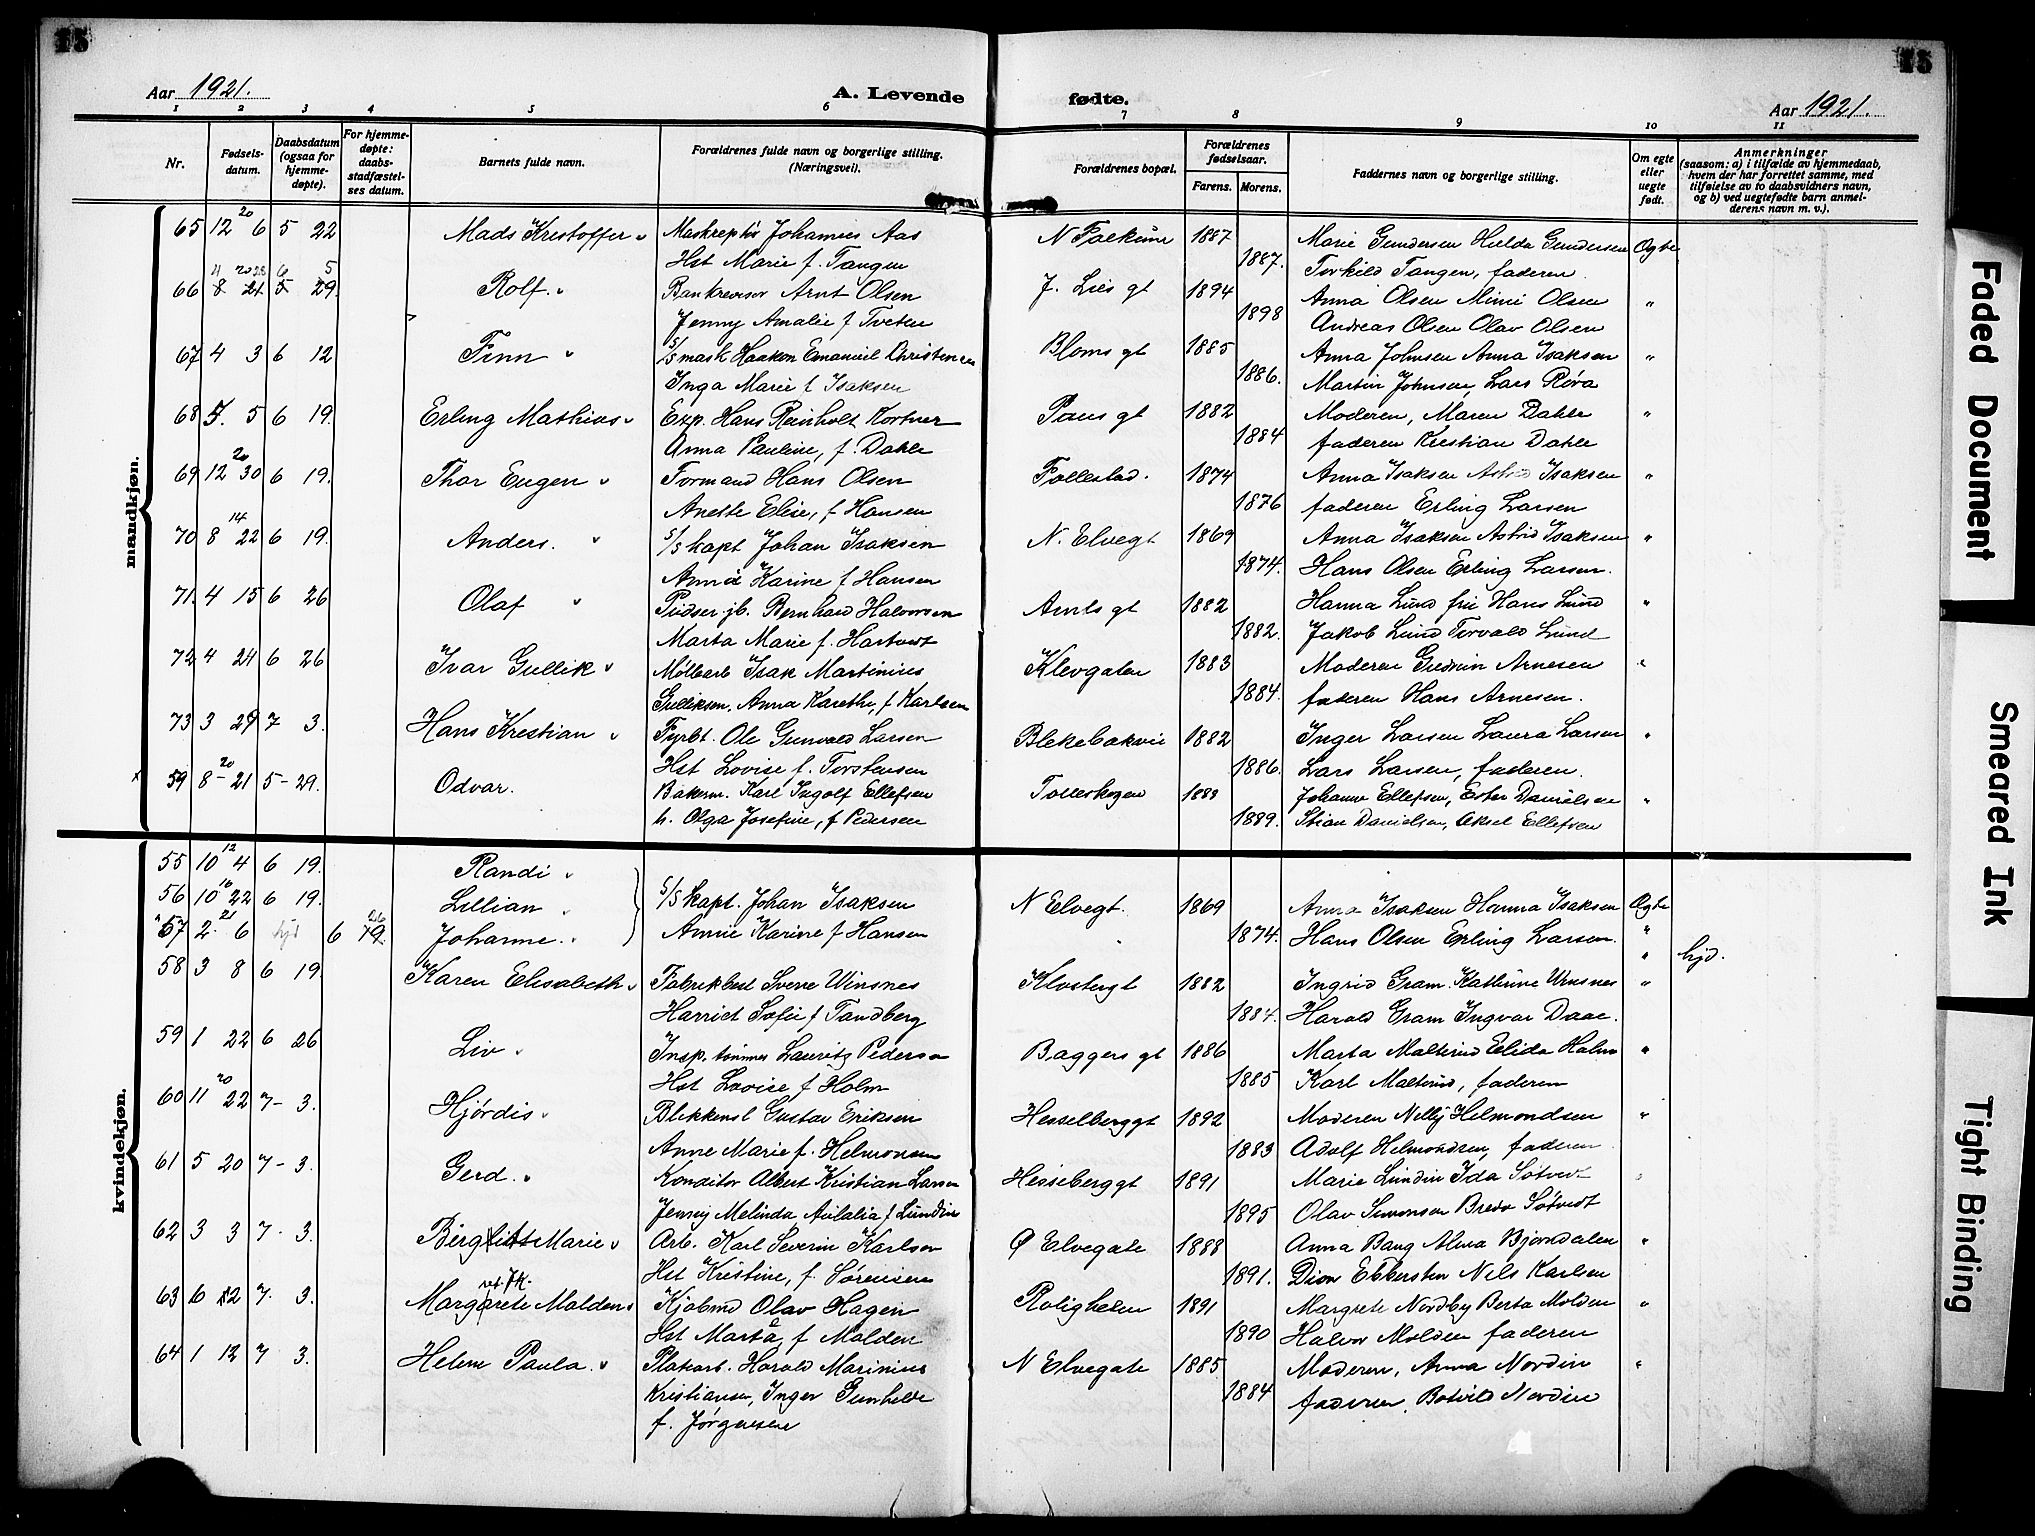 15
15
Aar 1921.
A. Levende
fødte.
Aar 1921.
1 2 3 4 5 6 7 8 9 10 11
Nr.
Fødsels-datum.
Daabsdatum (ogsaa for hjemme-døpte).
For hjemme-døpte: daabs-stadfæstel-ses datum.
Barnets fulde navn.
Forældrenes fulde navn og borgerlige stilling. (Næringsvei).
Forældrenes bopæl.
Forældrenes fødselsaar.
Farens. Morens.
Faddernes navn og borgerlige stilling.
Om egte eller uegte født.
Anmerkninger (saasom: a) i tilfælde av hjemmedaab, hvem der har forrettet samme, med tilføielse av to daabsvidners navn, og b) ved uegtefødte barn anmel-derens navn m. v.).
mandkjøn.
65 12 20 6 5 22 Mads Kristoffer Johannes Aas 1887 Marie Gundersen Hulda Gundersen Egte
Hst Marie f. Tangen 1887. Torkild Tangen, faderen.
66 8 21 5 29. Rolf. Bankrevisor Arnt Olsen J. Lies gt 1894 Anna Olsen Mimi Olsen "
Jenny Amalie f Tveten 1898 Andreas Olsen Olav Olsen
67 4 3 6 12 Finn S/S mask Haakon Emanuel Christensen Bloms gt 1885 Anna Johnsen Anna Isaksen "
Inga Marie f Isaksen 1886. Martin Johnsen, Lars Røra
68 5. 5 6 19. Erling Mathias Exp. Hans Reinholt Kortner Paus gt 1882 Moderen, Maren Dahle "
Anna Pauline, f. Dahle 1884 faderen Kristian Dahle
69 12 20 30 6 19. Thor Eugen Formand Hans Olsen Follestad. 1874 Anna Isaksen Astrid Isaksen "
Anette Elise, f Hansen 1876 faderen Erling Larsen
70 8 14 22 6 19. Anders. S/S kapt Johan Isaksen N. Elvegt 1869 Anna Isaksen Astrid Isaksen "
Annie Karine f Hansen 1874. Hans Olsen Erling Larsen.
71. 4 15 6 26 Olaf Pudser jb. Bernhard Halvorsen Arnts gt 1882 Hanna Lund fru Hans Lund "
Marta Marie f. Hartvedt 1882. Jakob Lund Torvald Lund
72 4 24 6 26 Ivar Gullik Mølbarb Isak Martinius Klevgaten 1883 Moderen Gudrun Arnesen "
Gulliksen, Anna Karethe, f Karlsen 1884. faderen Hans Arnesen.
73 3 29 7 3. Hans Kristian Fyrbt. Ole Gunvald Larsen Blekebakvei 1882 Inger Larsen Laura Larsen "
Hst Lovise f. Torstensen 1886. Lars Larsen, faderen.
x 59 8 20 21 5-29. Odvar. Bakerm. Karl Ingolf Ellefsen 1888 Johanne Ellefsen, Ester Danielsen "
h. Olga Josefine, f Pedersen 1889. Stian Danielsen, Aksel Ellefsen
kvindekjøn.
55 10 12 4 6 19. Randi
56 10 16 22 6 19. Lillian S/S kapt. Johan Isaksen N Elvegt. 1869 Anna Isaksen Hanna Isaksen Egte
57 2. 21 6 hjd 6 26 19. Johanne. Annie Karine f Hansen 1874. Hans Olsen Erling Larsen. " hjd.
58 3 8 6 19 Karen Elisabeth Fabrikbest Sverre Winsnes Klostergt 1882 Ingrid Gram. Kathrine Winsnes "
Harriet Sofie f Tandberg 1884. Harald Gram Ingvar Daae.
59 1 22 6 26 Liv Insp. tømmer Lauritz Pedersen Baggers gt 1886 Marta Malterud Elida Holm "
Hst Lovise f Holm 1885 Karl Malterud, faderen
60 11 20 22 7-3. Hjørdis Blikkensl Gustav Eriksen Hesselberggt 1892 Moderen Nelly Helmondsen "
Anne Marie f. Helmonsen 1883 Adolf Helmondsen, faderen.
61 5 20 7-3. Gerd. Konditor Albert Kristian Larsen Hesseberggt 1891 Marie Lundin Ida Søtvedt
Jenny Melinda Aulalia f Lundin 1895 Olav Simonsen Bredo Søtvedt
62 3 3 7. 3. Birgit Marie Arb. Karl Severin Karlsen Ø Elvegate 1888 Anna Bang Alma Bjørndalen "
Hst Kristine, f. Sørensen 1891. Dion Ebbersten Nils Karlsen
63 6 12 7. 3. Margrete Molden Kjøbmd Olav Hagen Roligheten 1891 Margrete Nordby Berta Molden "
Hst Marta, f Molden 1890 Halvor Molden faderen
64 1 12 7 3. Helene Paula Platearb. Harald Marinius N Elvegate 1885 Moderen, Anna Nordin "
Kristiansen, Inger Gunhilde 1884 faderen, Botvild Nordin
f. Jørgensen
Faded Document
Smeared Ink
Tight Binding